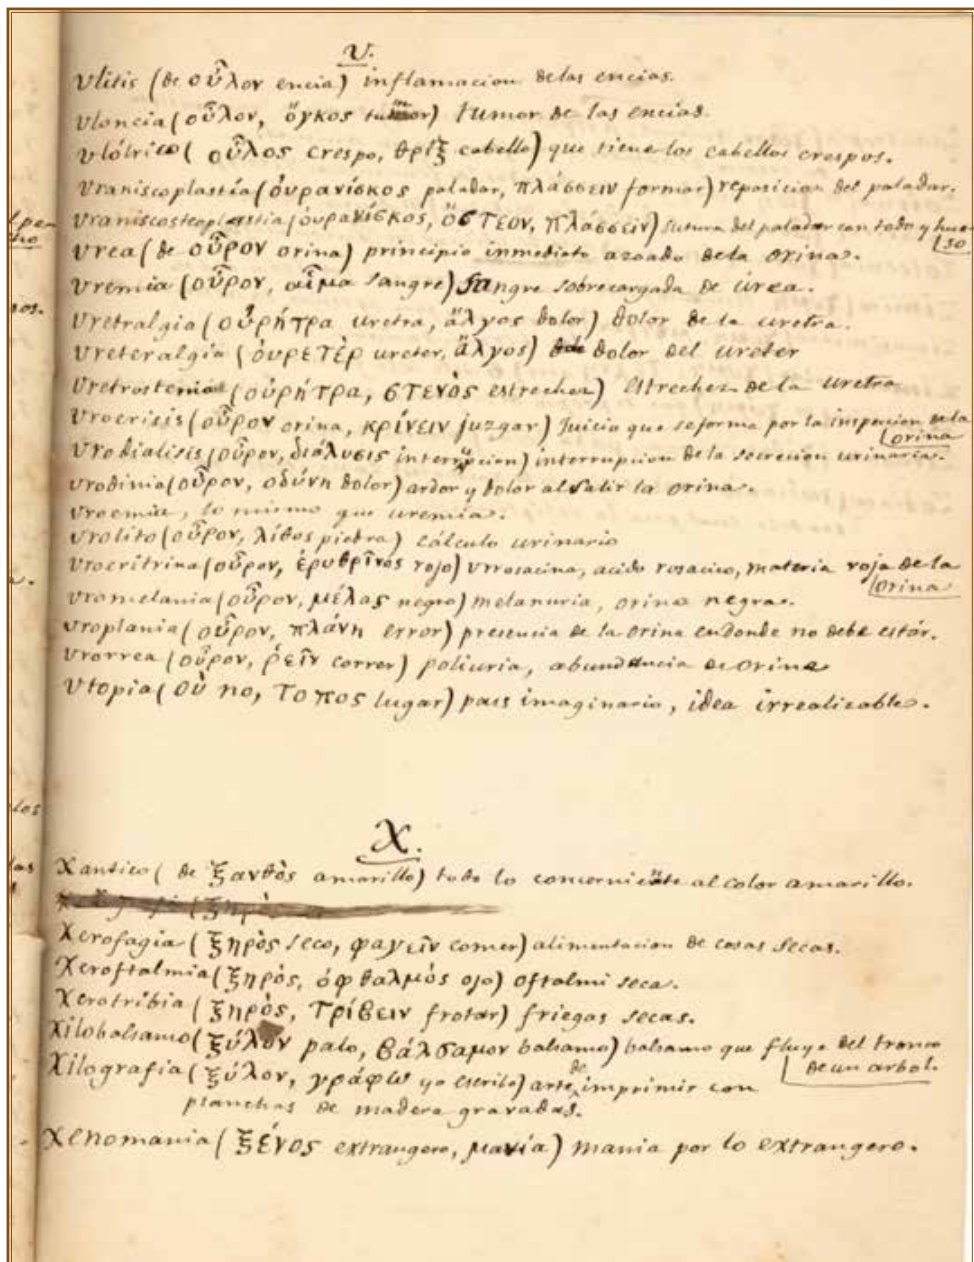 U.
Ulitis (de οὖλον encia) inflamacion de las encias.
Uloncia (οὖλον, ὄγκος tumor) tumor de las encias.
Ulótrico (οὖλος crespo, θρίξ cabello) que tiene los cabellos crespos.
Uraniscoplastia (ὀυρανίσκος paladar, πλάσσειν formar) reposicion del paladar.
Uraniscosteoplastia (ὀυρανίσκος, ὄστεον, πλάσσειν) sutura del paladar con todo y hue
so
Urea (de οὖρον orina) principio inmediato azoado de la orina.
Uremia (οὖρον, αἷμα sangre) sangre sobrecargada de úrea.
Uretralgia (οὐρήτρα uretra, ἄλγος dolor) dolor de la uretra.
Ureteralgia (ὀυρετέρ ureter, ἄλγος) dolor del ureter
Uretrostemia (οὐρήτρα, στενὸς estrechez) estrechez de la uretra
Urocrisis (οὖρον orina, κρίνειν juzgar) Juicio que se forma por la inspeccion de la
orina
Urodialisis (οὖρον, διάλυσις interrupcion) interrupcion de la secrecion urinaria.
Urodinia (οὖρον, οδύνη dolor) ardor y dolor al salir la orina.
Uroemia, lo mismo que uremia.
Urolito (οὖρον, λίθος piedra) cálculo urinario
Uroeritrina (οὖρον, ἐρυθρῖνός rojo) urrosacina, acido rosacico, materia roja de la
orina
Uromelania (οὖρον, μέλας negro) melanuria, orina negra.
Uroplania (οὖρον, πλάνη error) presencia de la orina en donde no debe estár.
Urorrea (οὖρον, ῥεῖν correr) poliuria, abundancia de orina
Utopia (οὐ no, τοπος lugar) pais imaginario, idea irrealizable.
X.
Xantico (de ξανθὸς amarillo) todo lo concerniente al color amarillo.
Xerofagia (ξηρὸς seco, φαγεῖν comer) alimentacion de cosas secas.
Xeroftalmia (ξηρὸς, όφθαλμὸς ojo) oftalmi seca.
Xerotribia (ξηρὸς, τρίβειν frotar) friegas secas.
Xilobalsamo (ξύλον palo, βάλσαμον balsamo) balsamo que fluye del tronco
de un arbol.
Xilografia (ξύλον, γράφω yo escribo) arte de imprimir con
planchas de madera gravadas.
Xenomania (ξένος extrangero, μανία) mania por lo extrangero.